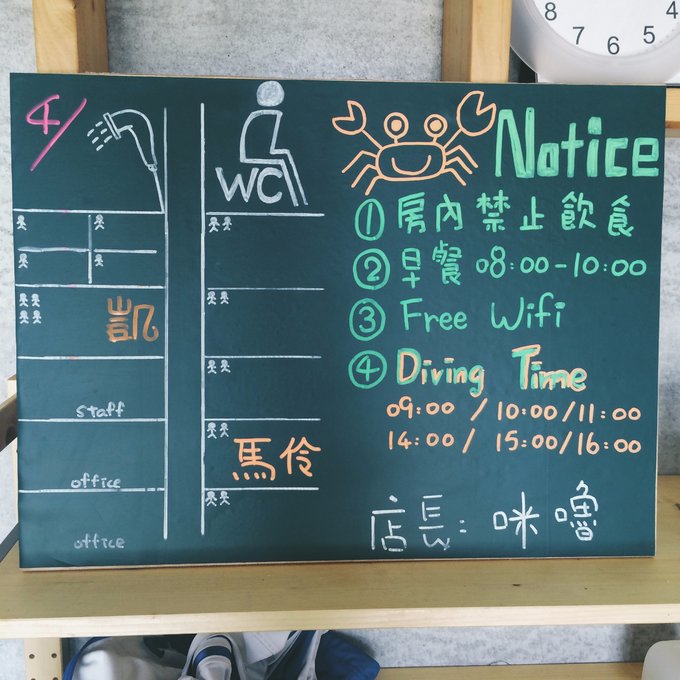 8 7 6 5 4
4/
WC
凱
staff
office
office
馬伶
Notice
① 房內禁止飲食
② 早餐 08:00-10:00
③ Free Wifi
④ Diving Time
09:00 / 10:00 / 11:00
14:00 / 15:00 / 16:00
店長: 咪嚕